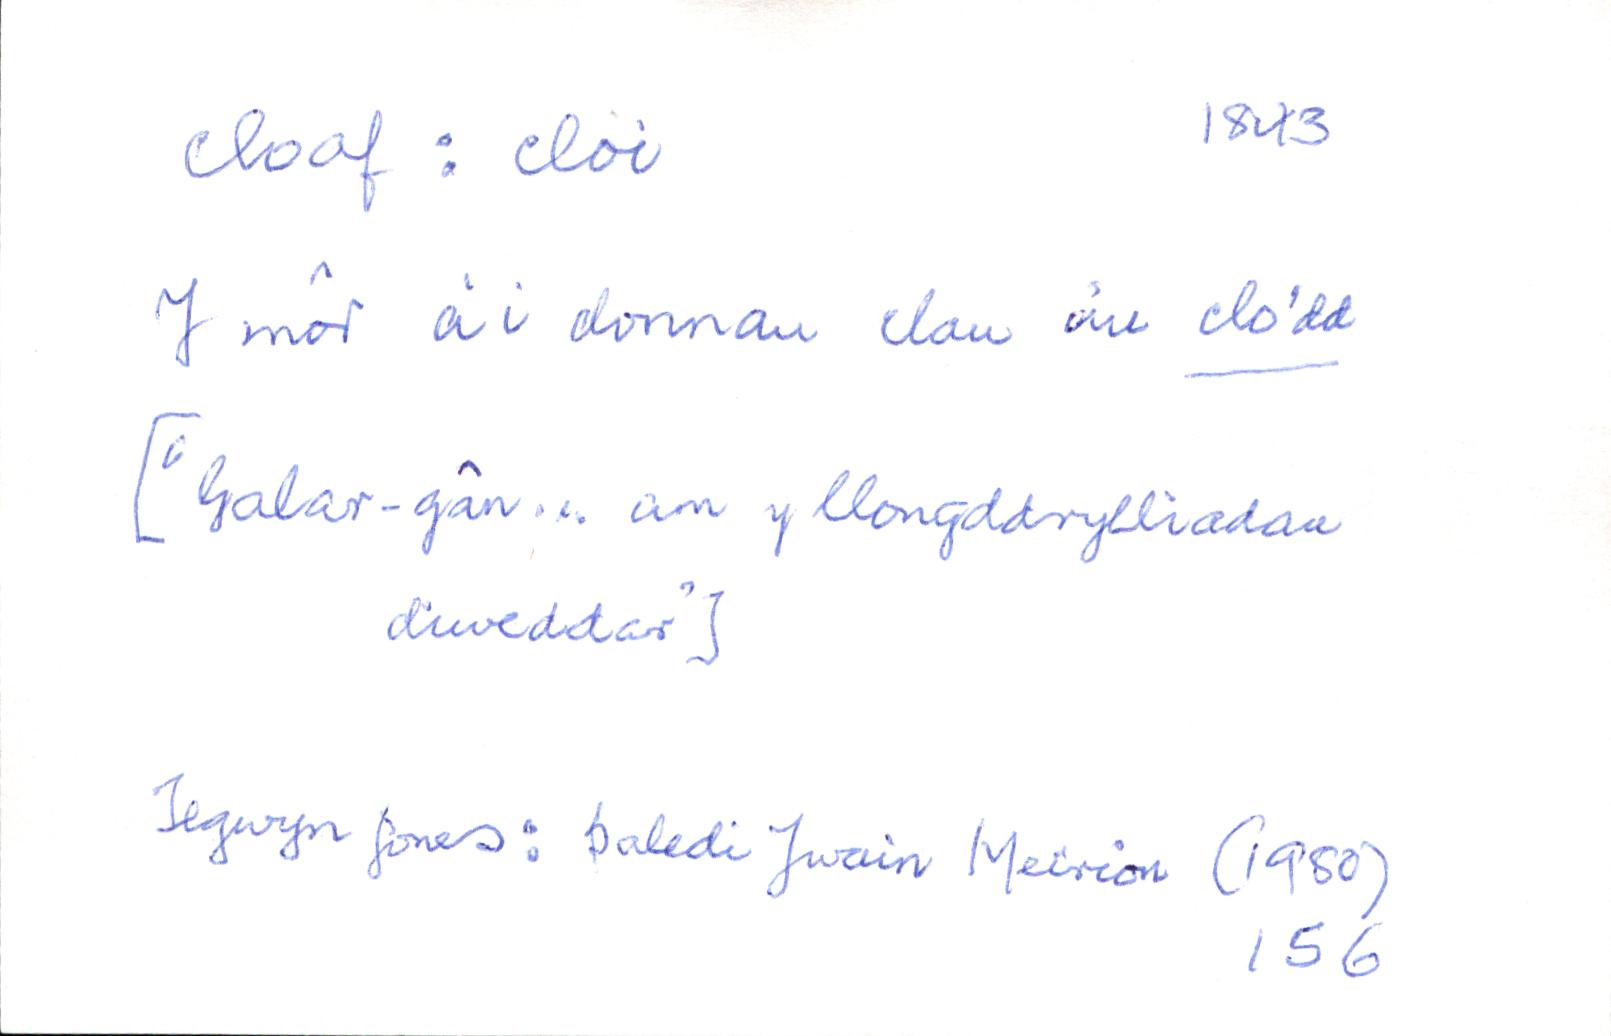 cloaf : cloi 1843
Y môr a'i donnau clau a'u clo'dd
["Galar-gân... am y llongddrylliadau
diweddar"]
Tegwyn Jones: Baledi Ywain Meirion (1980)
156